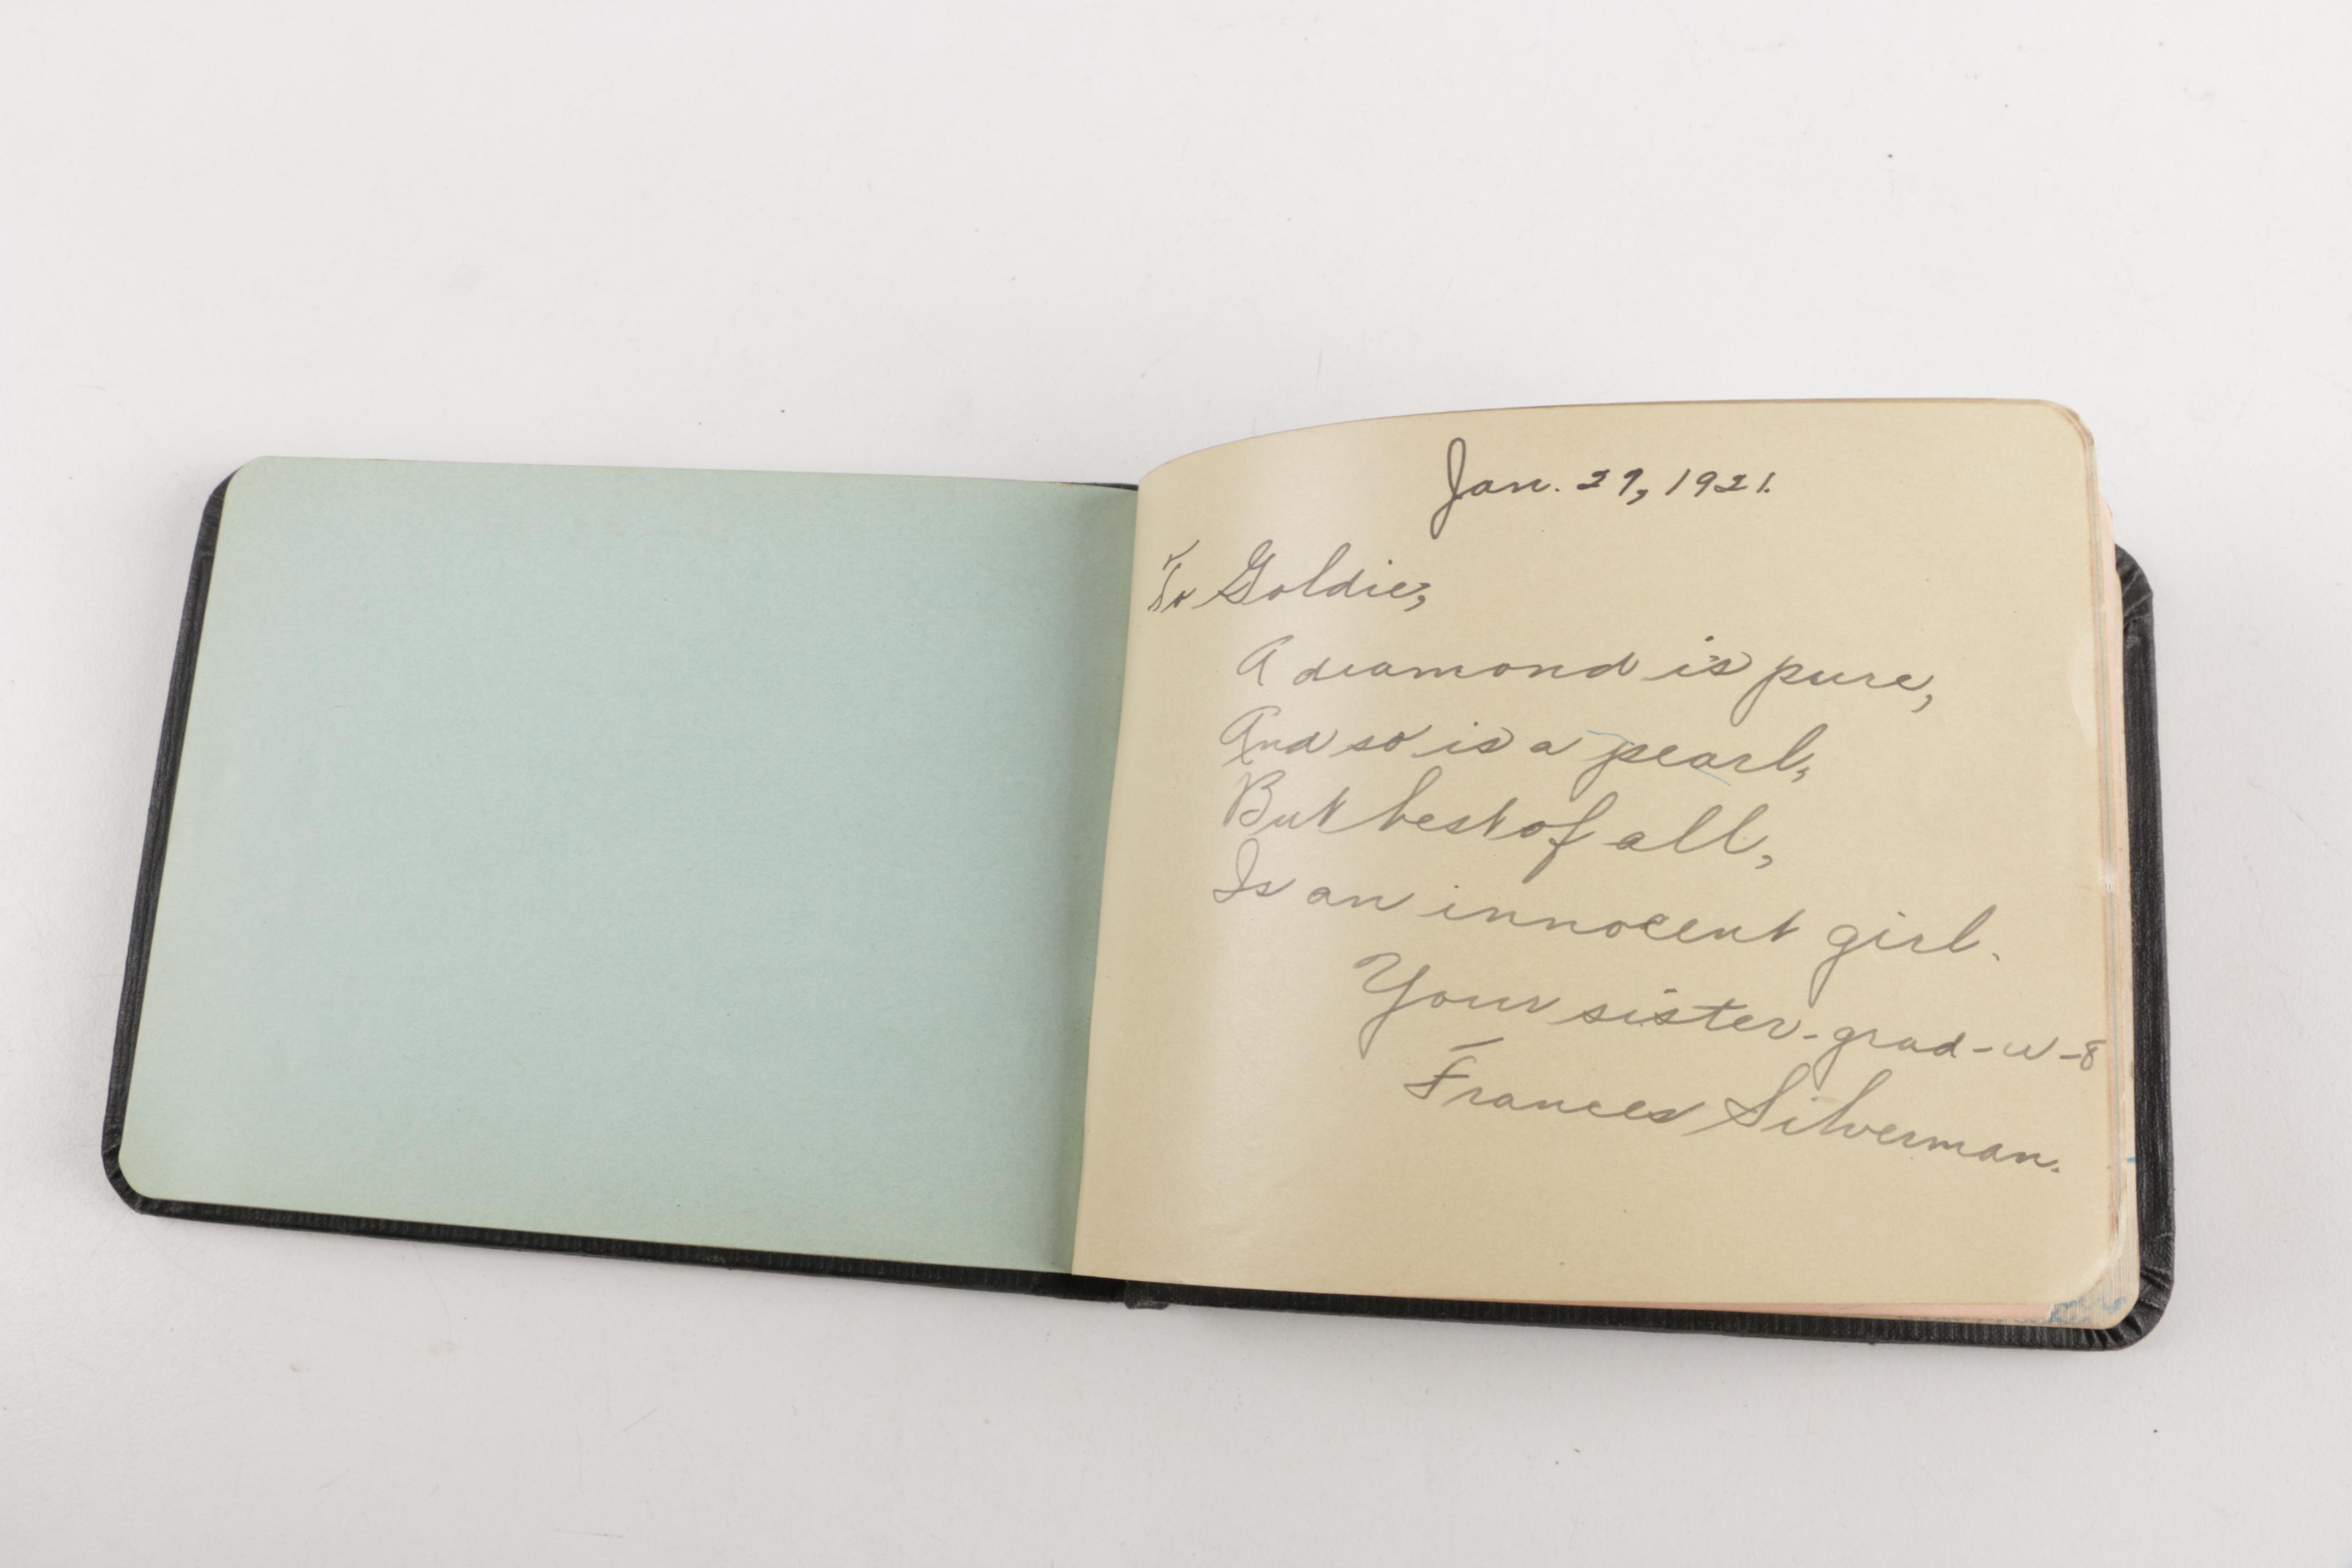 Jan. 27, 1921.
To Goldie,
A diamond is pure,
And so is a pearl,
But best of all,
Is an innocent girl.
Your sister-grad-u-8
Frances Silverman.